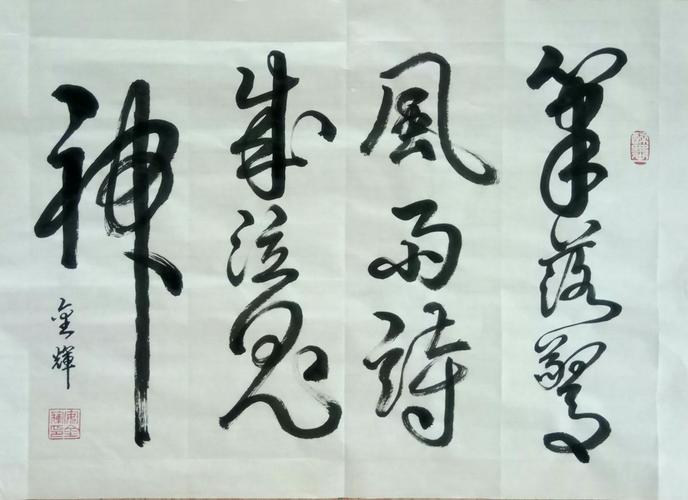 筆落驚
風雨詩
成泣鬼
神
金輝